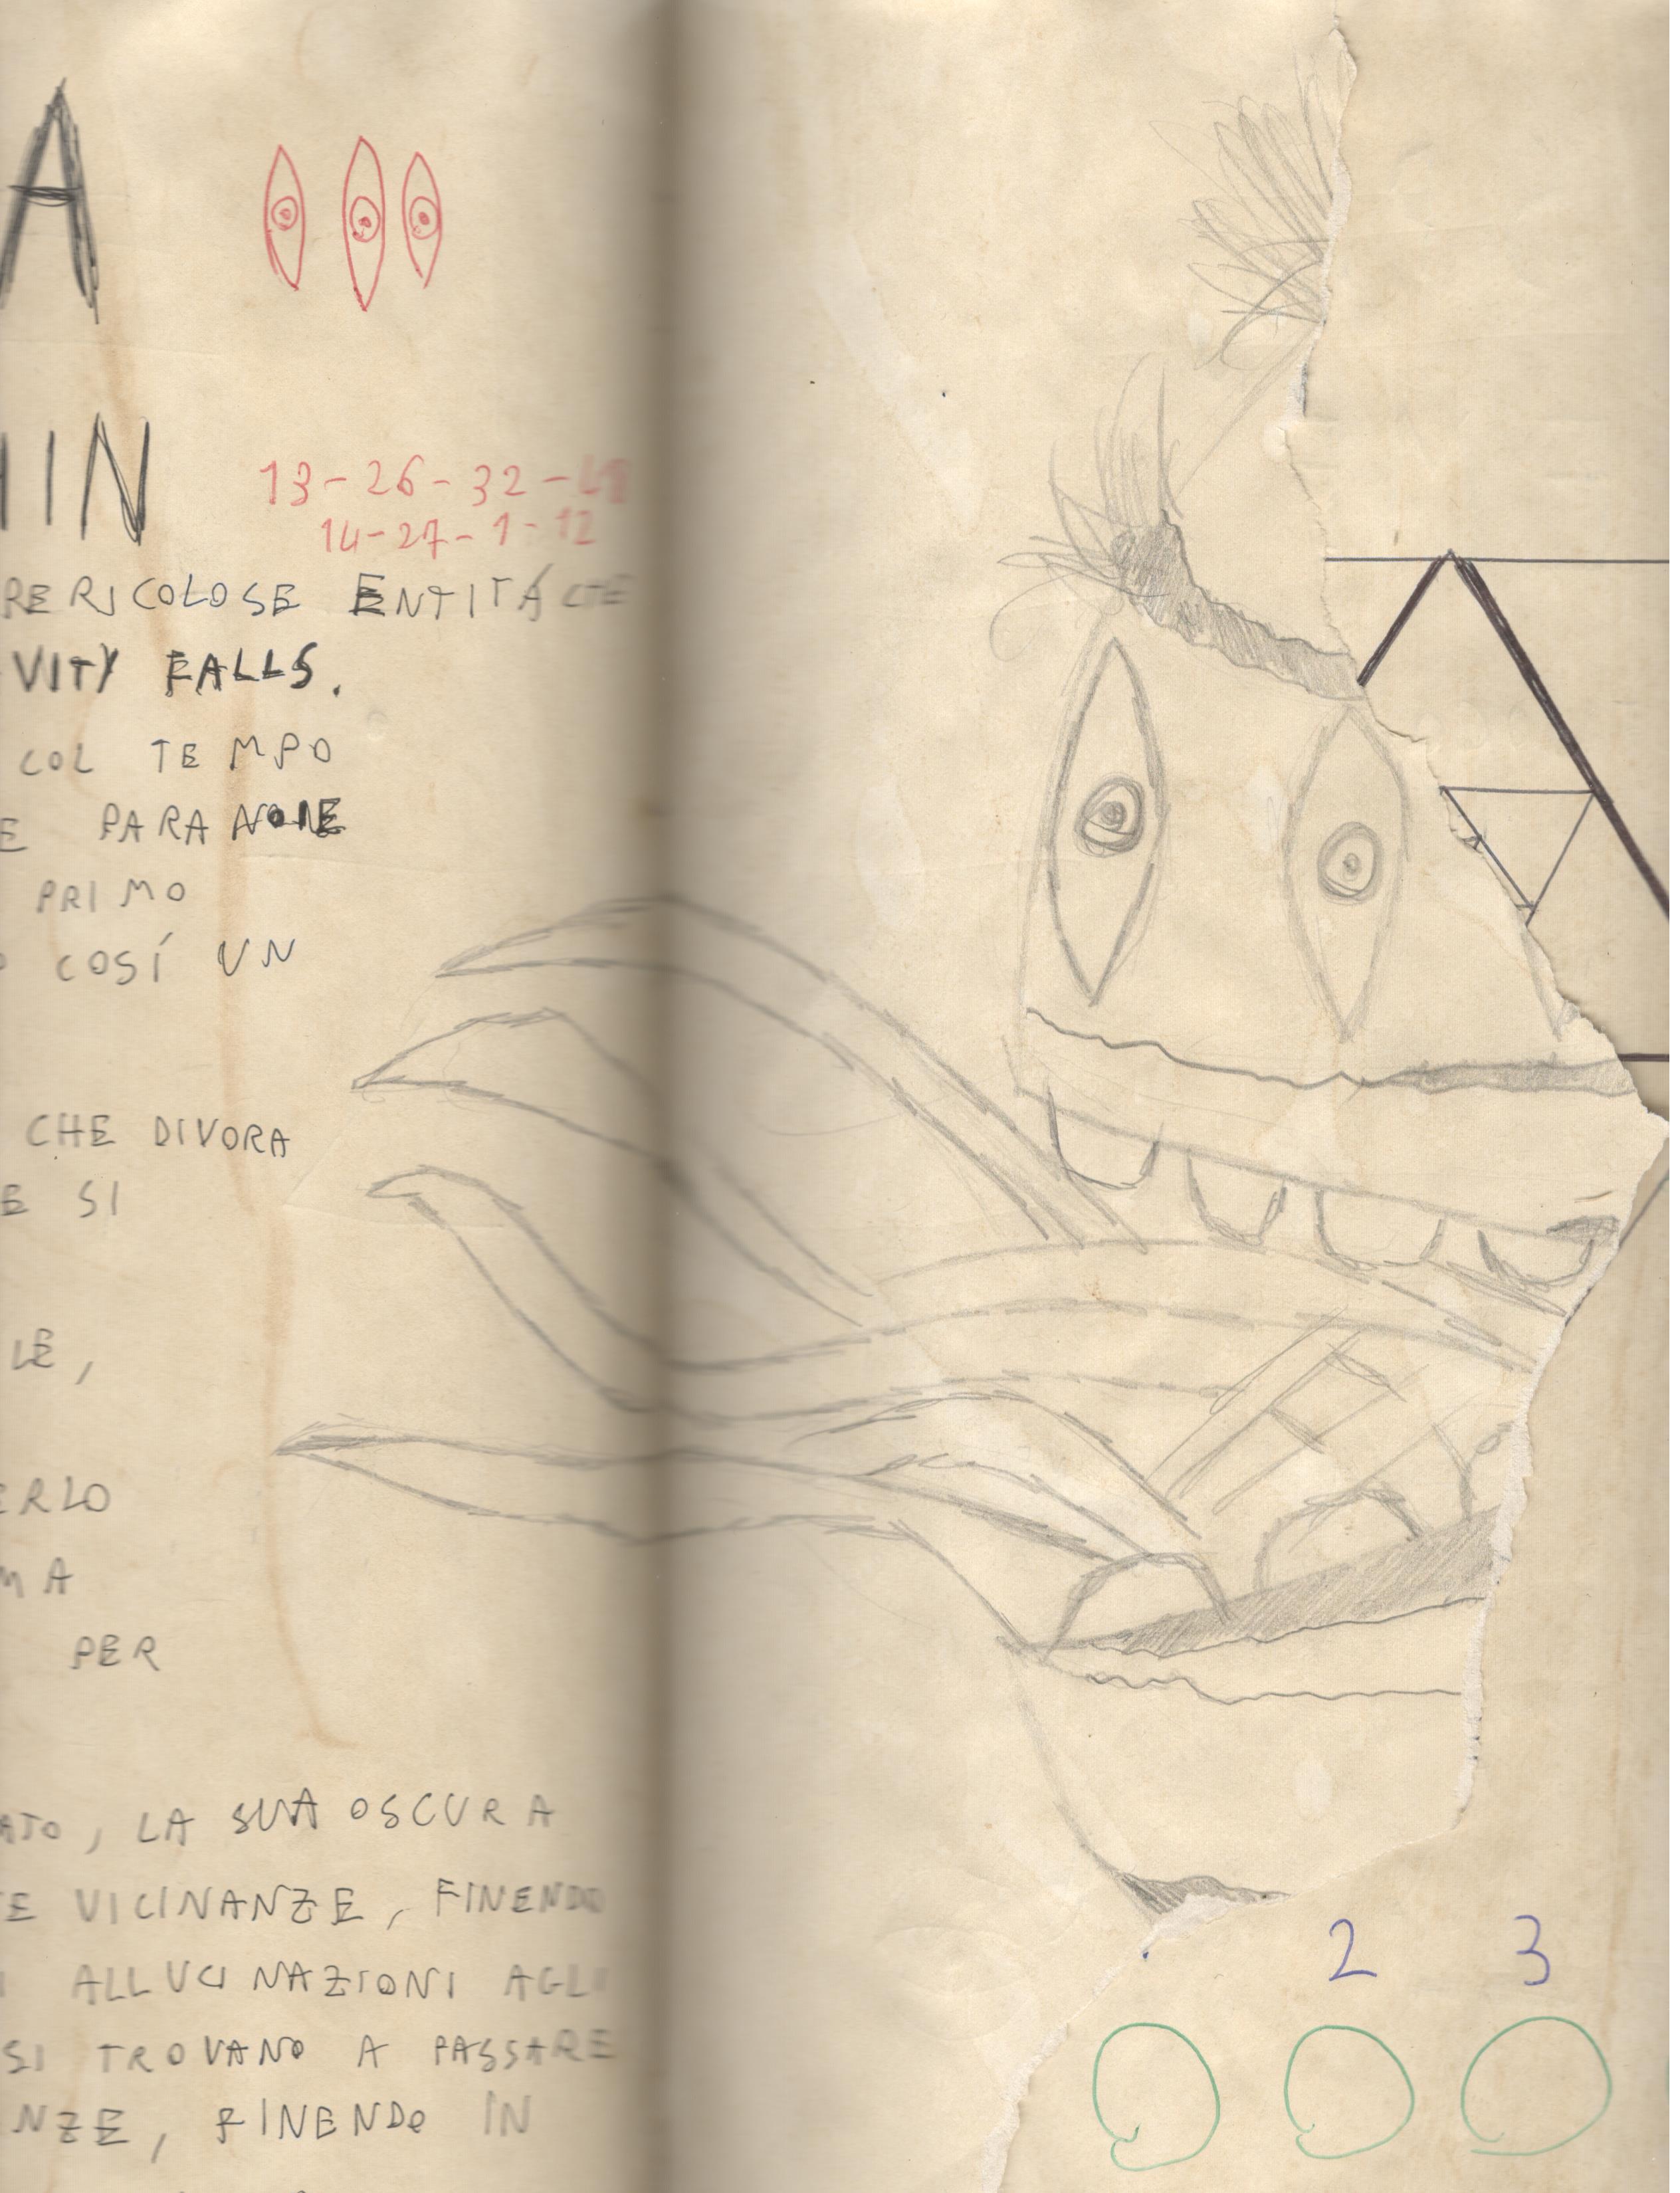 A
HIN
13-26-32-
14-27-1-12
PERICOLOSE ENTITÁ CHE
VITY FALLS.
COL TEMPO
E PARANOIE
PRIMO
COSÍ UN
CHE DIVORA
E SI
LE,
ERLO
MA
PER
ATO, LA SUA OSCURA
E VICINANZE, FINENDO
I ALLUCINAZIONI AGLI
SI TROVANO A PASSARE
NZE, FINENDO IN
2 3